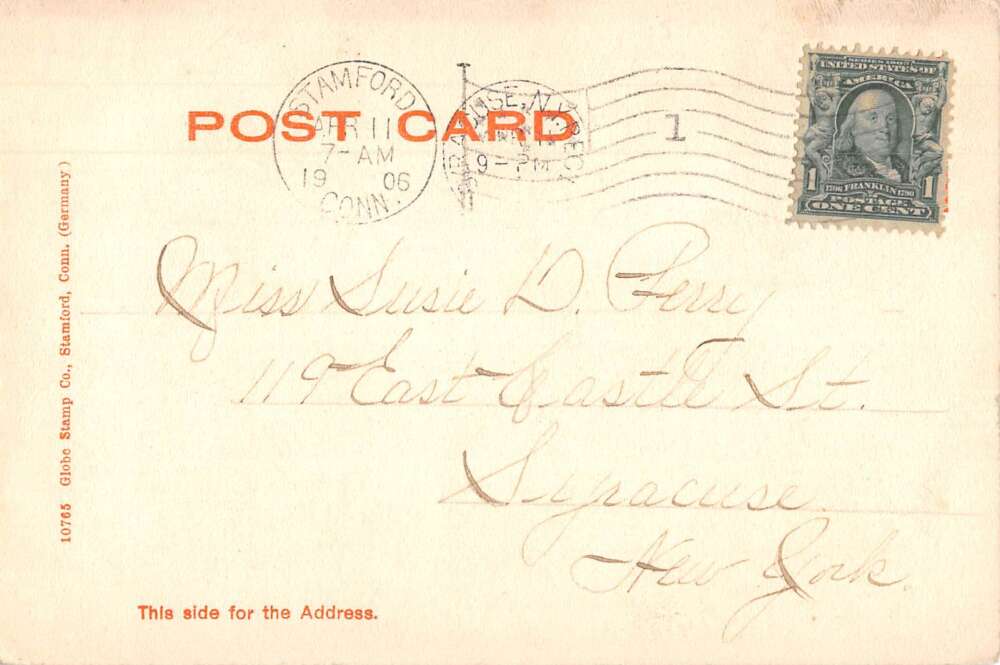 POST CARD
STAMFORD
APR 11
7-AM
1906
CONN.
SYRACUSE, N.Y. REC'D
9-PM
1
SERIES 1902
UNITED STATES OF
AMERICA
1 1706 FRANKLIN 1790 1
POSTAGE
ONE CENT
Miss Susie D. Perry
119 East Castle St.
Syracuse
New York.
10765 Globe Stamp Co., Stamford, Conn. (Germany)
This side for the Address.